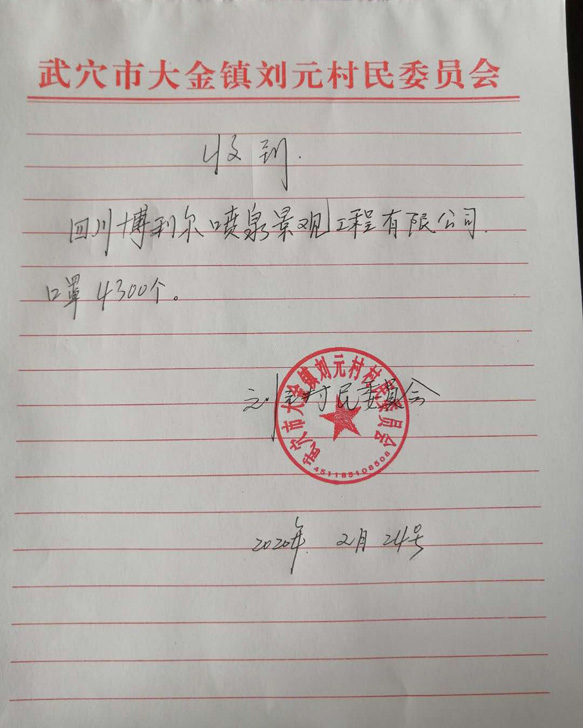 武穴市大金镇刘元村民委员会
收到.
四川博利尔喷泉景观工程有限公司.
口罩4300个。
刘元村民委员会
武穴市大金镇刘元村村民委员会
2020年 2月 24号